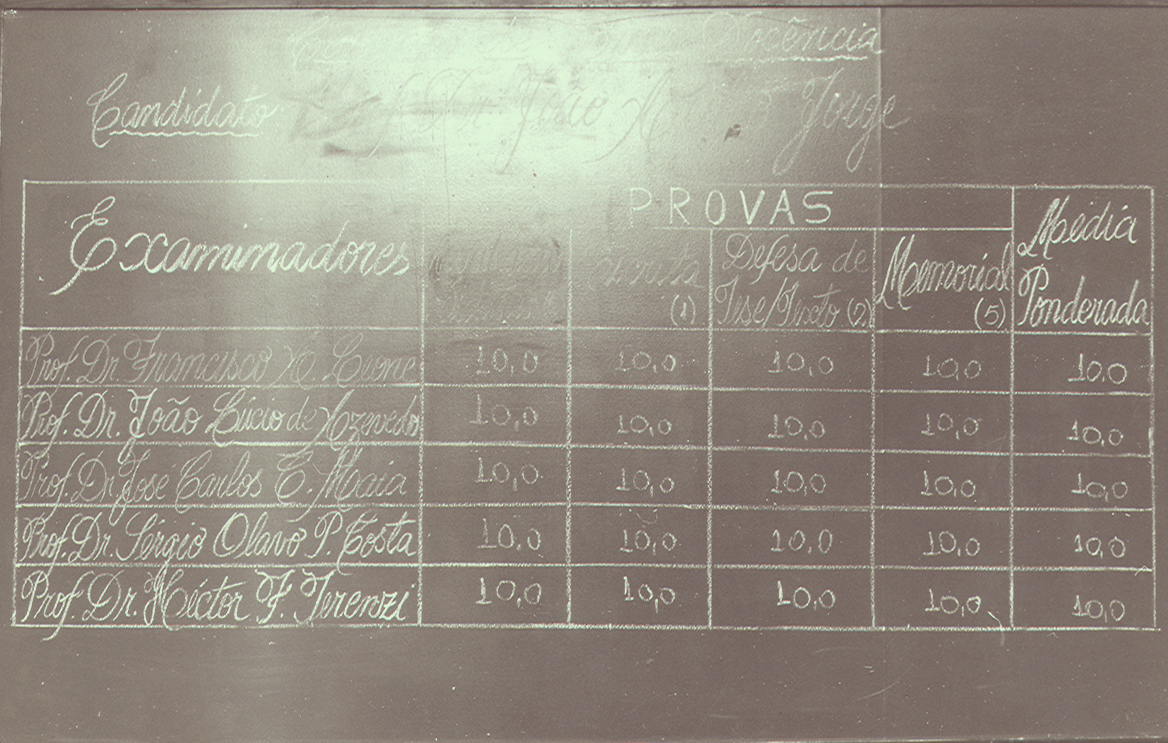 Docência
Candidato Prof. Dr. João Jorge
PROVAS
Examinadores
Média
Ponderada
Escrita
(1)
Defesa de
Tese/Texto (2)
Memorial
(5)
Prof. Dr. Francisco A. Leone 10,0 10,0 10,0 10,0 10,0
Prof. Dr. João Lúcio de Azevedo 10,0 10,0 10,0 10,0 10,0
Prof. Dr. José Carlos C. Maia 10,0 10,0 10,0 10,0 10,0
Prof. Dr. Sérgio Olavo P. Costa 10,0 10,0 10,0 10,0 10,0
Prof. Dr. Héctor F. Terenzi 10,0 10,0 10,0 10,0 10,0